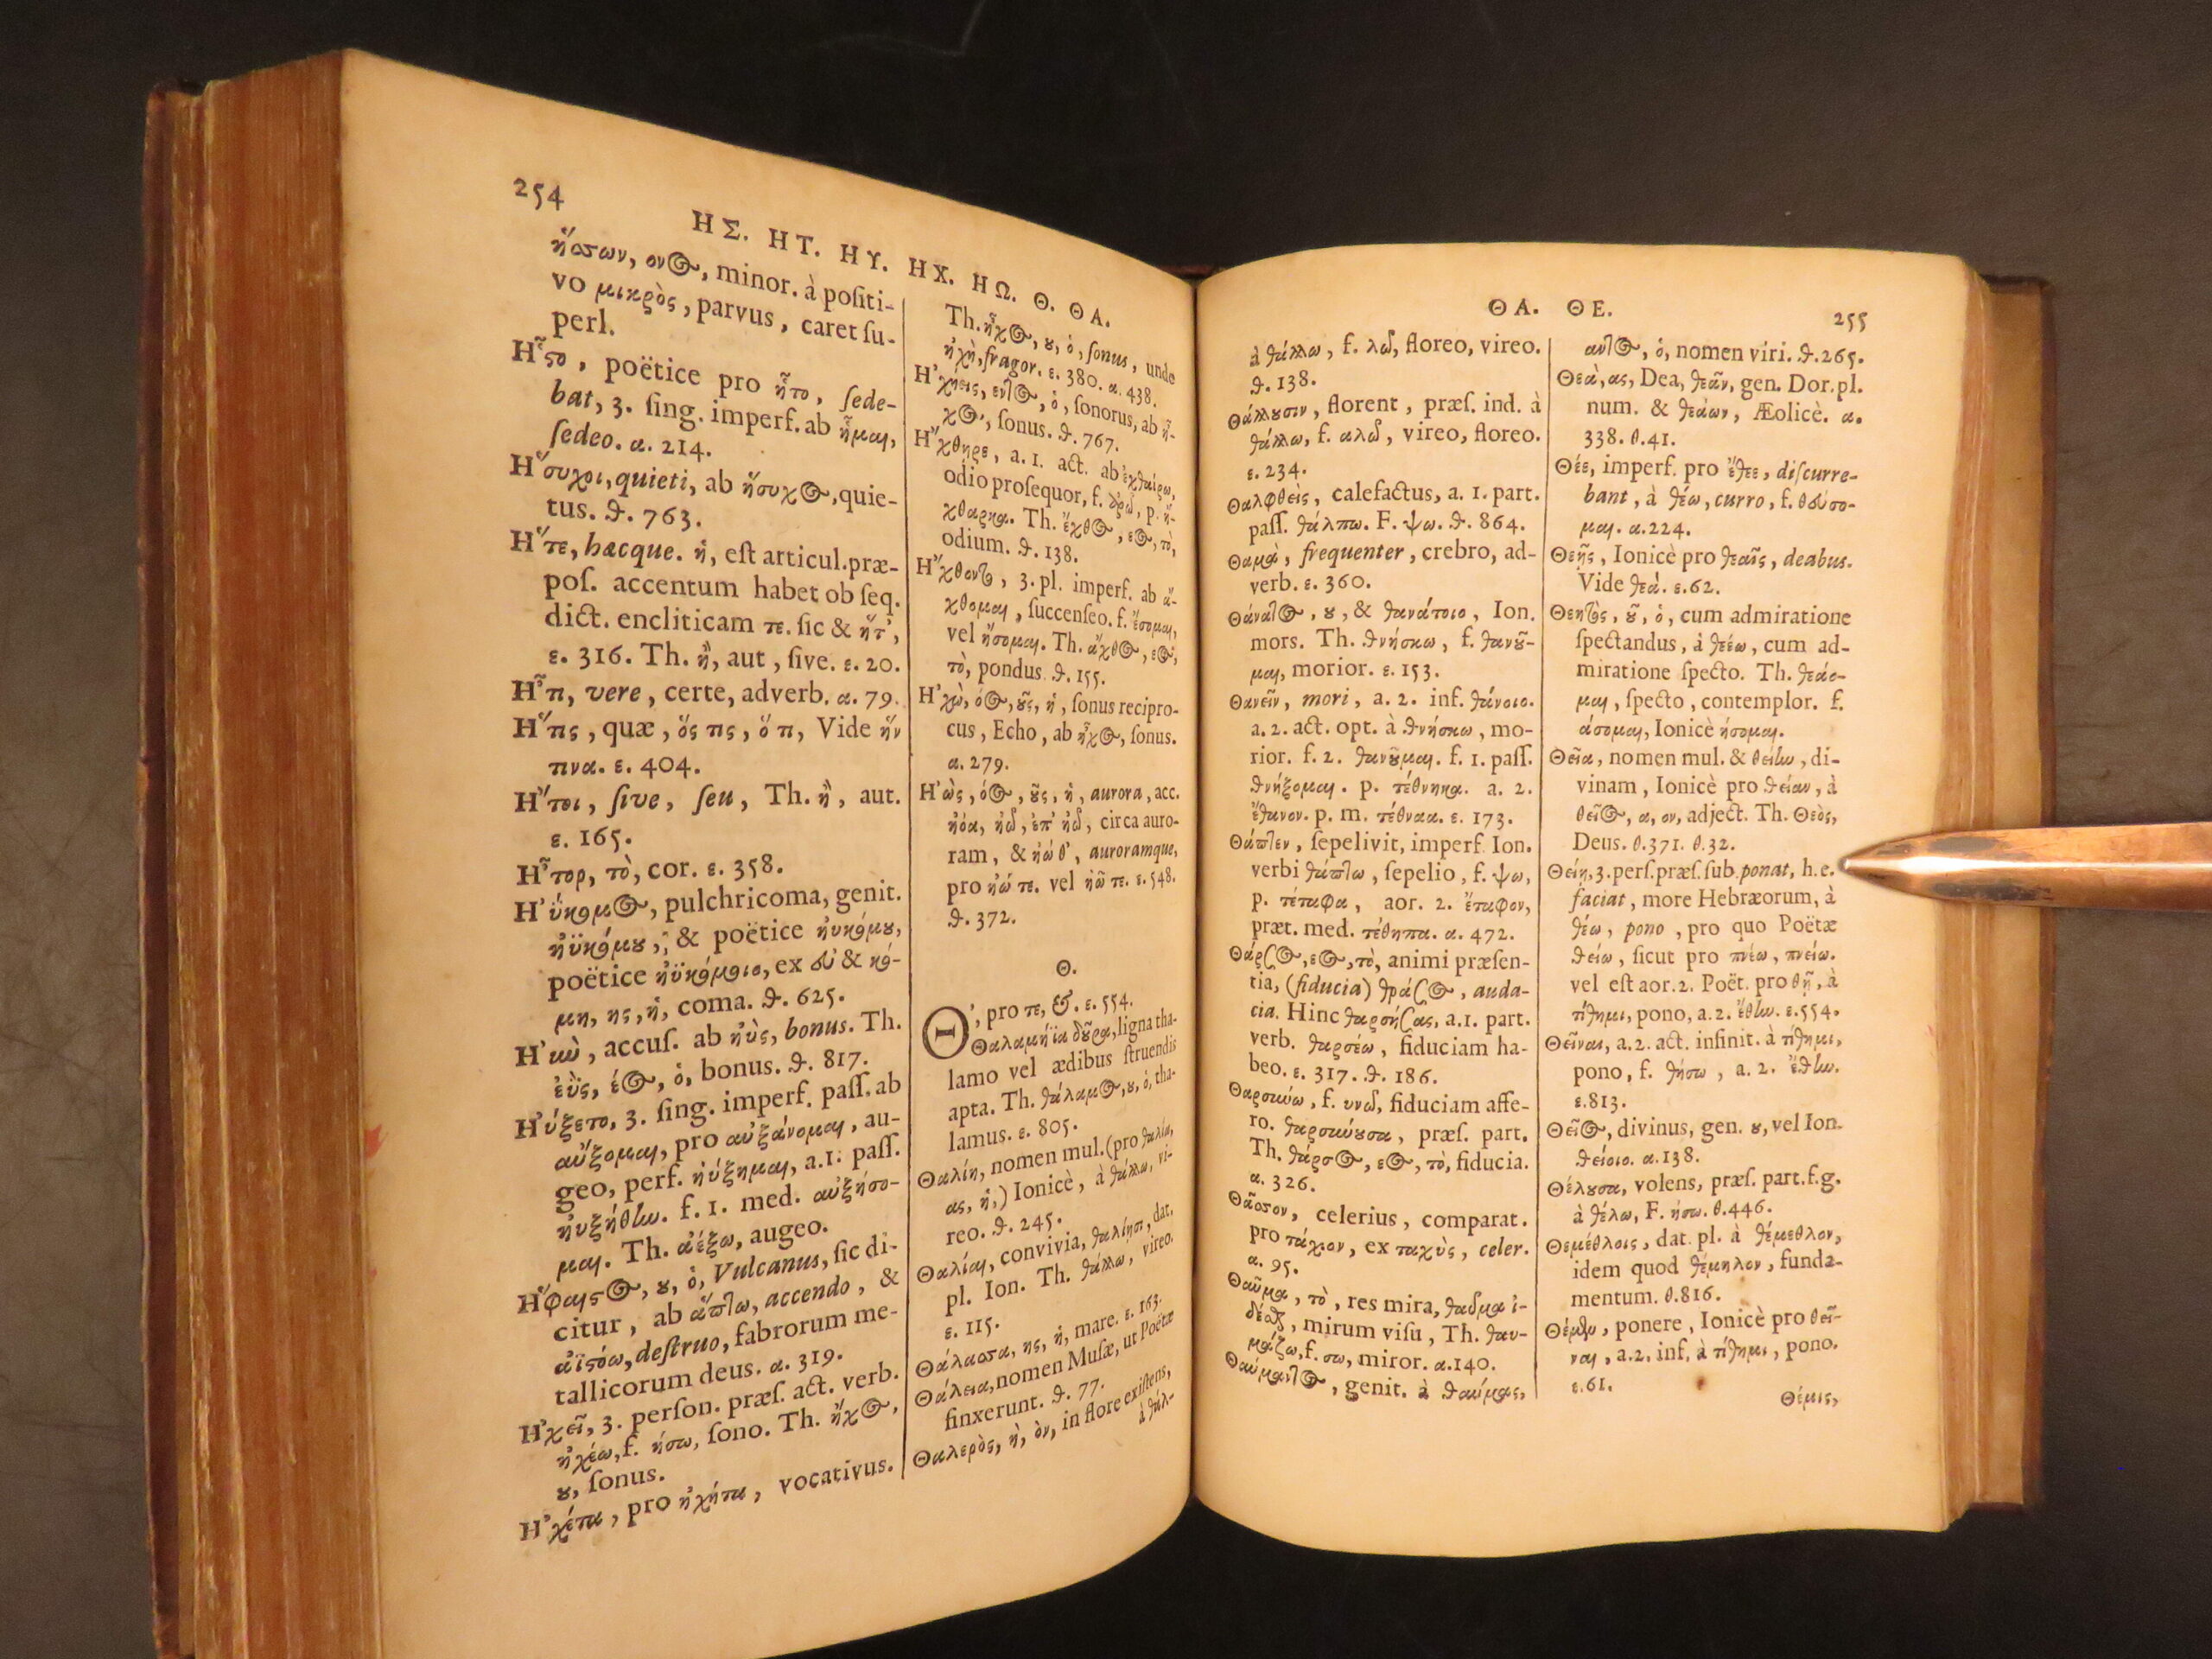 254
ΗΣ. ΗΤ. ΗΥ. ΗΧ. ΗΩ. Θ. ΘΑ.
ἥσσων, ονος, minor. à poſiti-
vo μικρὸς, parvus, caret ſu-
perl.
Ηʽ͂ςο, poëtice pro ἧτο, ſede-
bat, 3. ſing. imperf. ab ἧμαι,
ſedeo. α. 214.
Ηʽ́συχοι, quieti, ab ἥσυχος, quie-
tus. ϑ. 763.
Ηʽ́τε, hæcque. ἡ, eſt articul. præ-
poſ. accentum habet ob ſeq.
dict. encliticam τε. ſic & ἥτ',
ε. 316. Th. ἢ, aut, ſive. ε. 20.
Ηʼ͂τι, vere, certe, adverb. α. 79.
Ηʽ́τις, quæ, ὅς τις, ὅ τι, Vide ἥν
τινα. ε. 404.
Ηʼ́τοι, ſive, ſeu, Th. ἢ, aut.
ε. 165.
Ηʼ͂τορ, τὸ, cor. ε. 358.
Ηʼύκομος, pulchricoma, genit.
ἠϋκόμου, & poëtice ἠυκόμου,
poëtice ἠϋκόμοιο, ex εὖ & κό-
μη, ης, ἡ, coma. ϑ. 625.
Ηʼὺν, accuſ. ab ἠὺς, bonus. Th.
ἐῢς, έος, ὁ, bonus. ϑ. 817.
Ηʼύξετο, 3. ſing. imperf. paſſ. ab
αὔξομαι, pro αὐξάνομαι, au-
geo, perf. ηὔξημαι, a. 1. paſſ.
ηὐξήθην. f. 1. med. αὐξήσο-
μαι. Th. ἀέξω, augeo.
Ηʽ́φαιςος, ου, ὁ, Vulcanus, ſic di-
citur, ab ἅπτω, accendo, &
ἀϊςόω, deſtruo, fabrorum me-
tallicorum deus. α. 319.
Ηʼχεῖ, 3. perſon. præſ. act. verb.
ἠχέω, f. ήσω, ſono. Th. ἦχος,
ου, ſonus.
Ηʼχέτα, pro ἠχήτα, vocativus.
Th. ἦχος, ου, ὁ, ſonus, unde
ἠχὴ, fragor. ε. 380. α. 438.
Ηʼχήεις, εντος, ὁ, ſonorus, ab ἦ-
χος, ſonus. ϑ. 767.
Ηʼ́χθηρε, a. 1. act. ab ἐχθαίρω,
odio proſequor, f. αρῶ, p. ἤ-
χθαρκα. Th. ἔχθος, εος, τὸ,
odium. ϑ. 138.
Ηʼ́χθοντο, 3. pl. imperf. ab ἄ-
χθομαι, ſuccenſeo. f. έσομαι,
vel ήσομαι. Th. ἄχθος, εος,
τὸ, pondus. ϑ. 155.
Ηʼχὼ, όος, οῦς, ἡ, ſonus recipro-
cus, Echo, ab ἦχος, ſonus.
α. 279.
Ηʼὼς, όος, οῦς, ἡ, aurora, acc.
ἠόα, ἠῶ, ἐπ' ἠῶ, circa auro-
ram, & ἠώ θ', auroramque,
pro ἠώ τε. vel ἠῶ τε. ε. 548.
ϑ. 372.
Θ.
Θ', pro τε, &. ε. 554.
Θαλαμήϊα δοῦρα, ligna tha-
lamo vel ædibus ſtruendis
apta. Th. ϑάλαμος, ου, ὁ, tha-
lamus. ε. 805.
Θαλίη, nomen mul. (pro ϑαλία,
ας, ἡ,) Ionicè, à ϑάλλω, vi-
reo. ϑ. 245.
Θαλίαι, convivia, ϑαλίησι, dat.
pl. Ion. Th. ϑάλλω, vireo.
ε. 115.
Θάλασσα, ης, ἡ, mare. ε. 163.
Θάλεια, nomen Muſæ, ut Poëtæ
finxerunt. ϑ. 77.
Θαλερὸς, ὴ, ὸν, in flore exiſtens,
à ϑάλ-
ΘΑ. ΘΕ. 255
à ϑάλλω, f. λῶ, floreo, vireo.
ϑ. 138.
Θάλλουσιν, florent, præſ. ind. à
ϑάλλω, f. αλῶ, vireo, floreo.
ε. 234.
Θαλφθεὶς, calefactus, a. 1. part.
paſſ. ϑάλπω. F. ψω. ϑ. 864.
Θαμὰ, frequenter, crebro, ad-
verb. ε. 360.
Θάνατος, ου, & ϑανάτοιο, Ion.
mors. Th. ϑνήσκω, f. ϑανοῦ-
μαι, morior. ε. 153.
Θανεῖν, mori, a. 2. inf. ϑάνοιο.
a. 2. act. opt. à ϑνήσκω, mo-
rior. f. 2. ϑανοῦμαι. f. 1. paſſ.
ϑνήξομαι. p. τέθνηκα. a. 2.
ἔθανον. p. m. τέθναα. ε. 173.
Θάπτεν, ſepelivit, imperf. Ion.
verbi ϑάπτω, ſepelio, f. ψω,
p. τέταφα, aor. 2. ἔταφον,
præt. med. τέθηπα. α. 472.
Θάρσος, εος, τὸ, animi præſen-
tia, (fiducia) ϑράσος, auda-
cia. Hinc ϑαρσήσας, a. 1. part.
verb. ϑαρσέω, fiduciam ha-
beo. ε. 317. ϑ. 186.
Θαρσύνω, f. υνῶ, fiduciam affe-
ro. ϑαρσύνουσα, præſ. part.
Th. ϑάρσος, εος, τὸ, fiducia.
α. 326.
Θᾶσσον, celerius, comparat.
pro τάχιον, ex ταχὺς, celer.
α. 95.
Θαῦμα, τὸ, res mira, ϑαῦμα ἰ-
δέσθαι, mirum viſu, Th. ϑαυ-
μάζω, f. σω, miror. α. 140.
Θαύμαντος, genit. à ϑαύμας,
αντος, ὁ, nomen viri. ϑ. 265.
Θεὰ, ας, Dea, ϑεᾶν, gen. Dor. pl.
num. & ϑεάων, Æolicè. α.
338. θ. 41.
Θέε, imperf. pro ἔϑεε, diſcurre-
bant, à ϑέω, curro, f. θεύσο-
μαι. α. 224.
Θεῆς, Ionicè pro ϑεαῖς, deabus.
Vide ϑεά. ε. 62.
Θεητὸς, οῦ, ὁ, cum admiratione
ſpectandus, à ϑεέω, cum ad-
miratione ſpecto. Th. ϑεάο-
μαι, ſpecto, contemplor. f.
άσομαι, Ionicè ήσομαι.
Θεῖα, nomen mul. & θείην, di-
vinam, Ionicè pro ϑείαν, à
θεῖος, α, ον, adject. Th. Θεὸς,
Deus. θ. 371. θ. 32.
Θείη, 3. perſ. præſ. ſub. ponat, h. e.
faciat, more Hebræorum, à
ϑέω, pono, pro quo Poëtæ
ϑείω, ſicut pro πνέω, πνείω.
vel eſt aor. 2. Poët. pro θῇ, à
τίϑημι, pono, a. 2. ἔθην. ε. 554.
Θεῖναι, a. 2. act. infinit. à τίϑημι,
pono, f. ϑήσω, a. 2. ἔϑην.
ε. 813.
Θεῖος, divinus, gen. ου, vel Ion.
ϑείοιο. α. 138.
Θέλουσα, volens, præſ. part. f. g.
à ϑέλω, F. ήσω. θ. 446.
Θεμέθλοις, dat. pl. à ϑέμεθλον,
idem quod ϑέμηλον, funda-
mentum. θ. 816.
Θέμεν, ponere, Ionicè pro θεῖ-
ναι, a. 2. inf. à τίϑημι, pono.
ε. 61.
Θέμις,